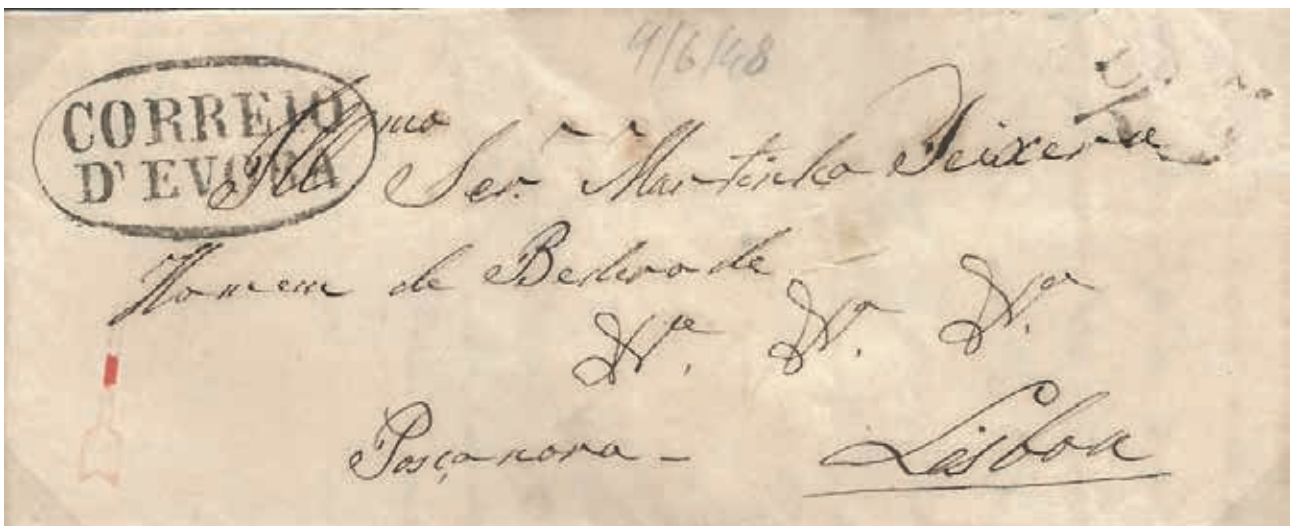 4/6/48
CORREIO
D'EVORA
Illmo Senr. Martinho Teixera
Homem de Bederode
Posçanova - Lisboa